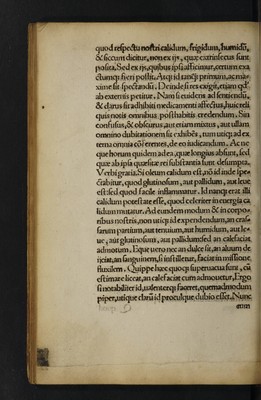 quod respectu nostri calidum, frigidum, humidū,
& siccum dicitur, non ex ijs, quæ extrinsecus sunt
posita, Sed ex ijs, quibus ipsi afficimur, certum exa
ctumq; fieri possit. Atq; id tanq̃ primum, ac ma-
xime sit spectandū. Deinde si res exigit, etiam qd
ab externis petitur. Nam si euidens ad sentiendū,
& clarus sit adhibiti medicamenti affectus, huic reli
quis notis omnibus posthabitis credendum. Sin
confusus, & obscurus, aut etiam mixtus, aut ullam
omnino dubitationem sit exhibēs, tum utiq; ad ex
tema omnia cōferentes, de eo iudicandum. Ac ne
que horum quidem ad ea, quæ longius absunt, sed
quæ ab ipsa quæsitæ rei substantia sunt desumpta.
Verbi gratia. Si oleum calidum est, nō id inde spe
ctabitur, quod glutinosum, aut pallidum, aut leue
est: sed quod facile inflammatur. Id nanq; erat illi
calidum potestate esse, quod celeriter in energia ca
lidum mutatur. Ad eundem modum & in corpo-
ribus nostris, non utiq; id expendendum, an crassa
rum partium, aut tenuium, aut humidum, aut le-
ue, aut glutinosum, aut pallidum: sed an calefaciat
admotum. Eque uero nec an dulce sit, an aluum de
ijciat, an sanguinem, si instilletur, faciat in missione
fluxilem. Quippe hæc quoq; superuacua sunt, cū
estimare liceat, an calefaciat cum admouetur, Ergo
si notabiliter id, euidenterq; faceret, quemadmodum
piper, utique etiā id procul que dubio esset, Nunc